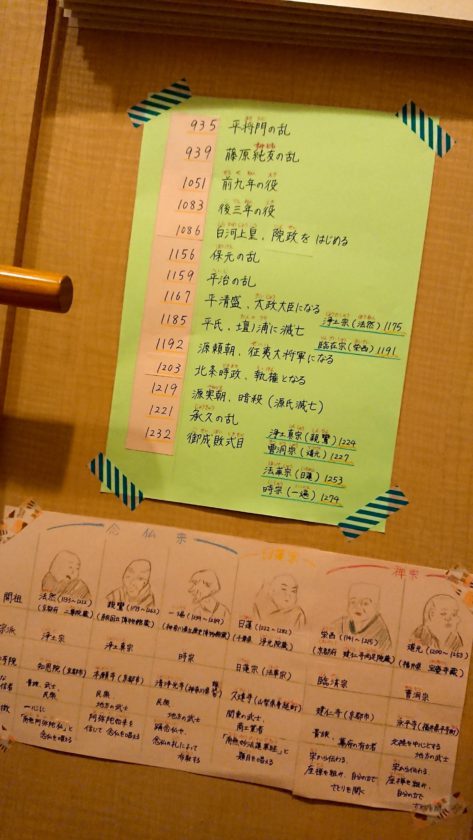 935 平将門の乱
939 藤原純友の乱
1051 前九年の役
1083 後三年の役
1086 白河上皇、院政をはじめる
1156 保元の乱
1159 平治の乱
1167 平清盛、太政大臣になる
浄土宗(法然)1175
1185 平氏、壇ノ浦に滅亡
臨在宗(栄西)1191
1192 源頼朝、征夷大将軍になる
1203 北条時政、執権となる
1219 源実朝、暗殺(源氏滅亡)
1221 承久の乱
浄土真宗(親鸞)1224
1232 御成敗式目
曹洞宗(道元)1227
法華宗(日蓮)1253
時宗(一遍)1274
念仏宗 日蓮宗 禅宗
開祖 法然(1133~1212) 親鸞(1173~1262) 一遍(1239~1289) 日蓮(1222~1282) 栄西(1141~1215) 道元(1200~1253)
宗派 浄土宗 浄土真宗 時宗 日蓮宗(法華宗) 臨済宗 曹洞宗
知恩院(京都市) 本願寺(京都市) 清浄光寺(神奈川県) 久遠寺(山梨県身延町) 建仁寺(京都市) 永平寺(福井県永平寺町)
貴族、武士、民衆
民衆、地方の武士
民衆 地方の武士
関東の武士、商工業者
貴族、幕府の有力者
北陸を中心とする地方の武士
一心に「南無阿弥陀仏」と念仏を唱える
阿弥陀如来を信じて念仏を唱える
踊念仏や、念仏の札によって布教する
「南無妙法蓮華経」と題目を唱える
宋から伝わる 座禅を組み、自分の力でさとりを開く
宋から伝わる 座禅を組み、自分の力で